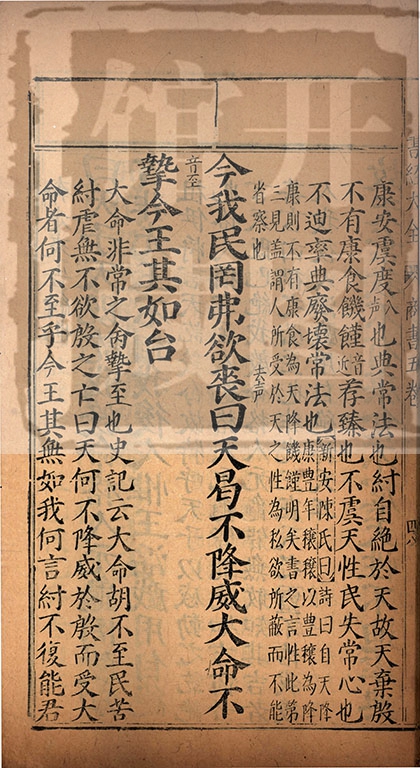 康安虞度入聲也典常法也紂自絕於天故天棄殷
不有康食饑饉音近荐臻也不虞天性民失常心也
不迪率典廢壞常法也
新安陳氏曰詩曰自天降
康豐年穰穰以豐穰為降
康則不有康食為天降饑饉明矣書之言性此第
三見蓋謂人所受於天之性為私欲所蔽而不能
省察也
去聲
今我民罔弗欲喪曰天曷不降威大命不
音至
摯今王其如台
大命非常之命摯至也史記云大命胡不至民苦
紂虐無不欲殷之亡曰天何不降威於殷而受大
命者何不至乎今王其無如我何言紂不復能君